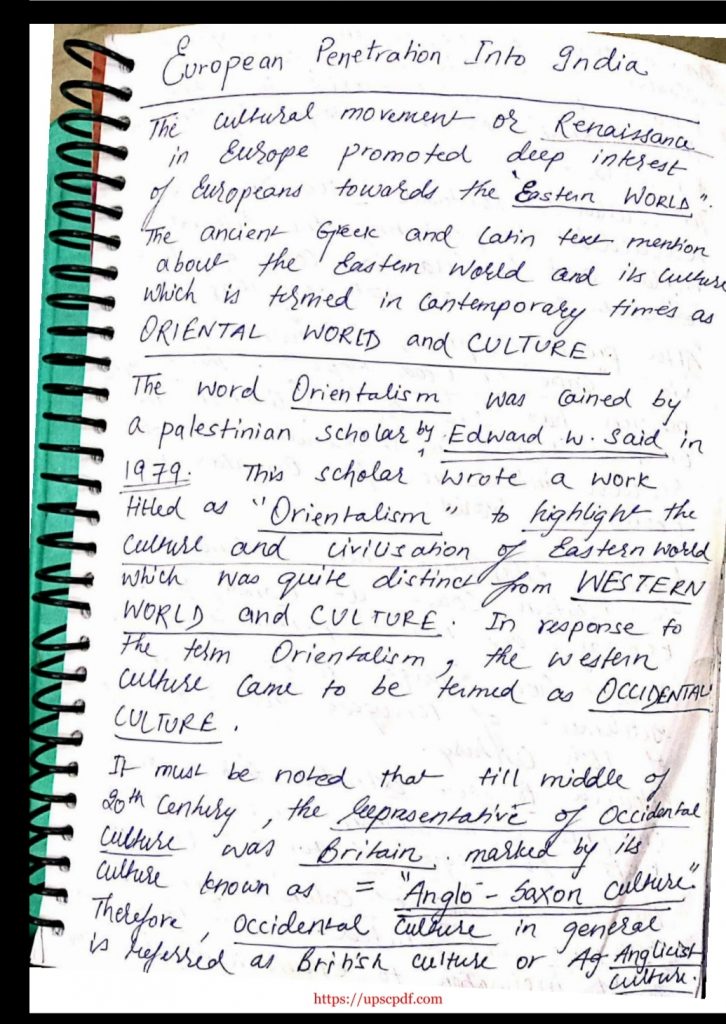 European Penetration Into India
The cultural movement or Renaissance
in Europe promoted deep interest
of Europeans towards the "Eastern WORLD".
The ancient Greek and Latin text mention
about the Eastern World and its culture
which is termed in contemporary times as
ORIENTAL WORLD and CULTURE
The word Orientalism was coined by
a palestinian scholar by Edward W. Said in
1979. This scholar wrote a work
titled as "Orientalism" to highlight the
culture and civilisation of Eastern world
which was quite distinct from WESTERN
WORLD and CULTURE. In response to
the term Orientalism, the western
culture came to be termed as OCCIDENTAL
CULTURE.
It must be noted that till middle of
20th Century, the Representative of Occidental
culture was Britain marked by its
culture known as = "Anglo-Saxon culture".
Therefore, Occidental Culture in general
is referred as British culture or Ag Anglicist
culture.
https://upscpdf.com